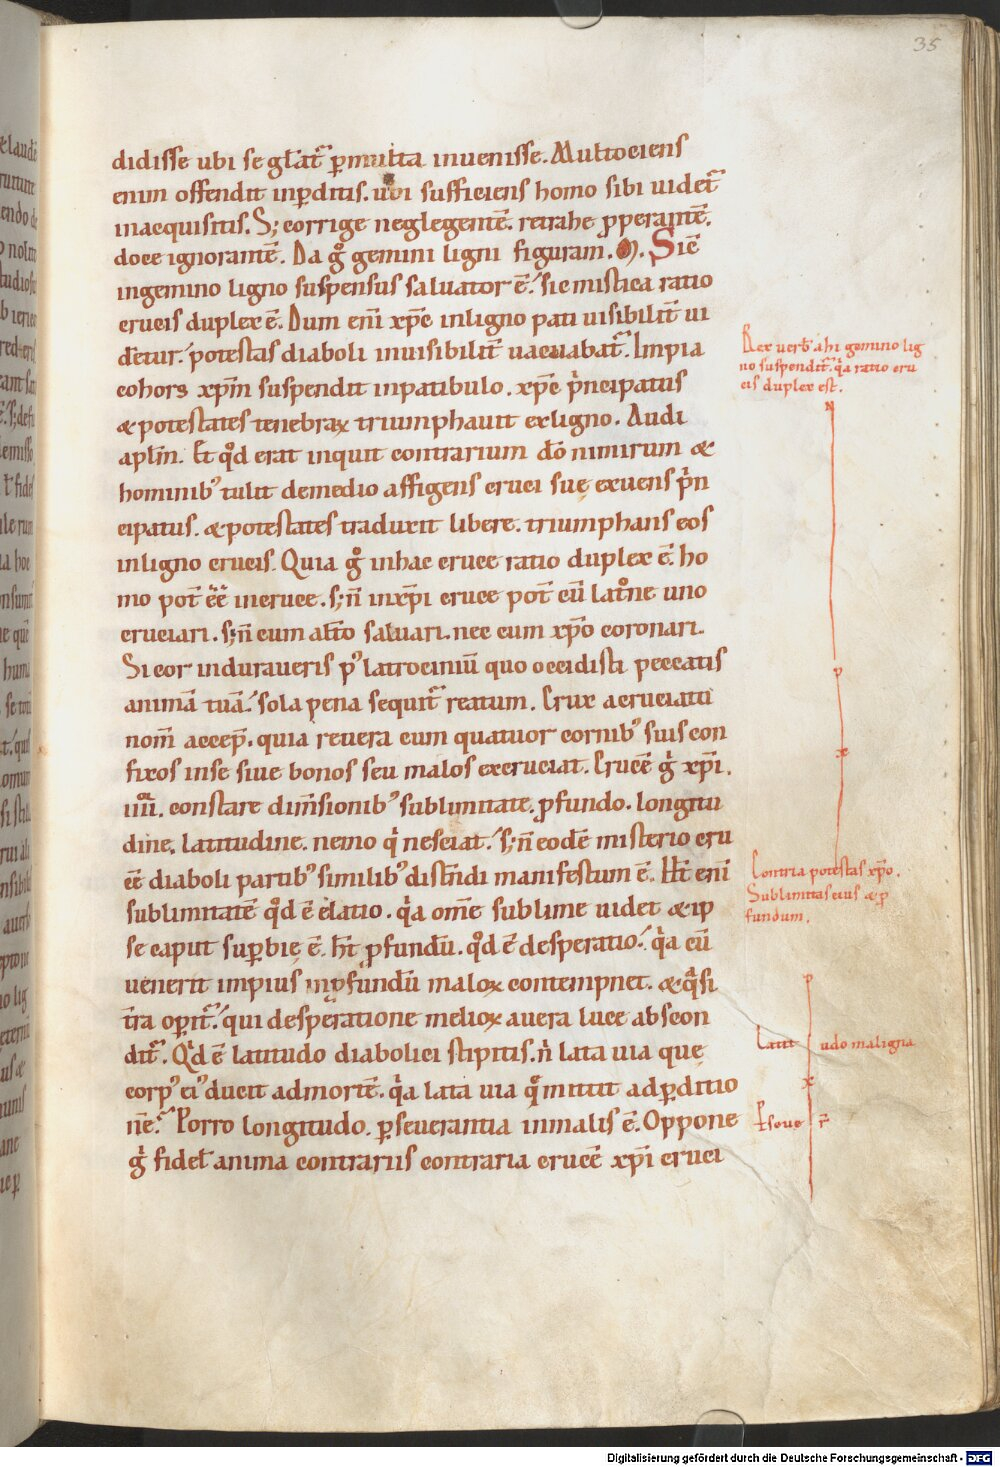 35
didisse ubi se gl̄at᷑ ꝑmulta inuenisse. Multociens
enim offendit inꝑditis. ubi sufficiens homo sibi uidet᷑
inacquisitis. S; corrige neglegentē. retrahe ꝓperantē.
doce ignorantē. Da gͦ gemini ligni figuram. M. Sic̄
ingemino ligno suspensus saluator ē. sic mistica ratio
crucis duplex ē. Dum eni xp̄c inligno pati uisibilit̄ ui
det̄ur. potestas diaboli inuisibilit̄ uacuabat᷑. Impia
cohors xp̄m suspendit inpatibulo. xp̄c pͥncipatus
& potestates tenebraꝝ triumphauit exligno. Audi
aplm̄. Et qͦd erat inquit contrarium dō nimirum &
hominibꝰ tulit demedio affigens cruci suę exuens pͥn
cipatus. & potestates traduxit libere. triumphans eos
inligno crucis. Quia gͦ inhac cruce ratio duplex ē. ho
mo pot̄ ēē incruce. s; n̄ inxp̄i cruce pot̄ cū latͦne uno
cruciari. s; n̄ cum alt̄o saluari. nec cum xp̄o coronari.
Si cor induraueris pꝰ latrociniū quo occidisti peccatis
animā tuā. sola pena sequit᷑ reatum. Crux acruciatu
nom̄ accep̄. quia reuera cum quatuor cornibꝰ suis con
fixos inse siue bonos seu malos excruciat. Crucē gͥ xp̄i.
iiiiͦʳ. constare dim̄sionibꝰ sublimitate. ꝓfundo. longitu
dine. latitudine. nemo qͥ nesciat. s; n̄ eodē misterio cru
cē diaboli partibꝰ similibꝰ distn̄di manifestum ē. H̄t eni
sublimitatē qͦd ē elatio. qͥa om̄e sublime uidet & ip
se caput suꝑbię ē. h̄t ꝓfundū. qͦd ē desperatio. qͥa cū
uenerit impius inꝓfundū maloꝝ contempnet. & qͣsi
t̄ra oꝑit᷑. qui desperatione melioꝝ auera luce abscon
dit᷑. Qͥd ē latitudo diabolici stipitis. n̄ lata uia quę
corpꝰ eiꝰ ducit admortē. qͥa lata uia qͣ̄ mittit adꝑditio
nē. Porro longitudo. ꝑseuerantia inmalis ē. Oppone
gͥ fidel̄ anima contrariis contraria crucē xp̄i cruci
no suspendit᷑. qͥa ratio cru
cis duplex est.
Contria potestas xp̄o.
Sublimitas eius & ꝓ
fundum.
Latit udo maligna